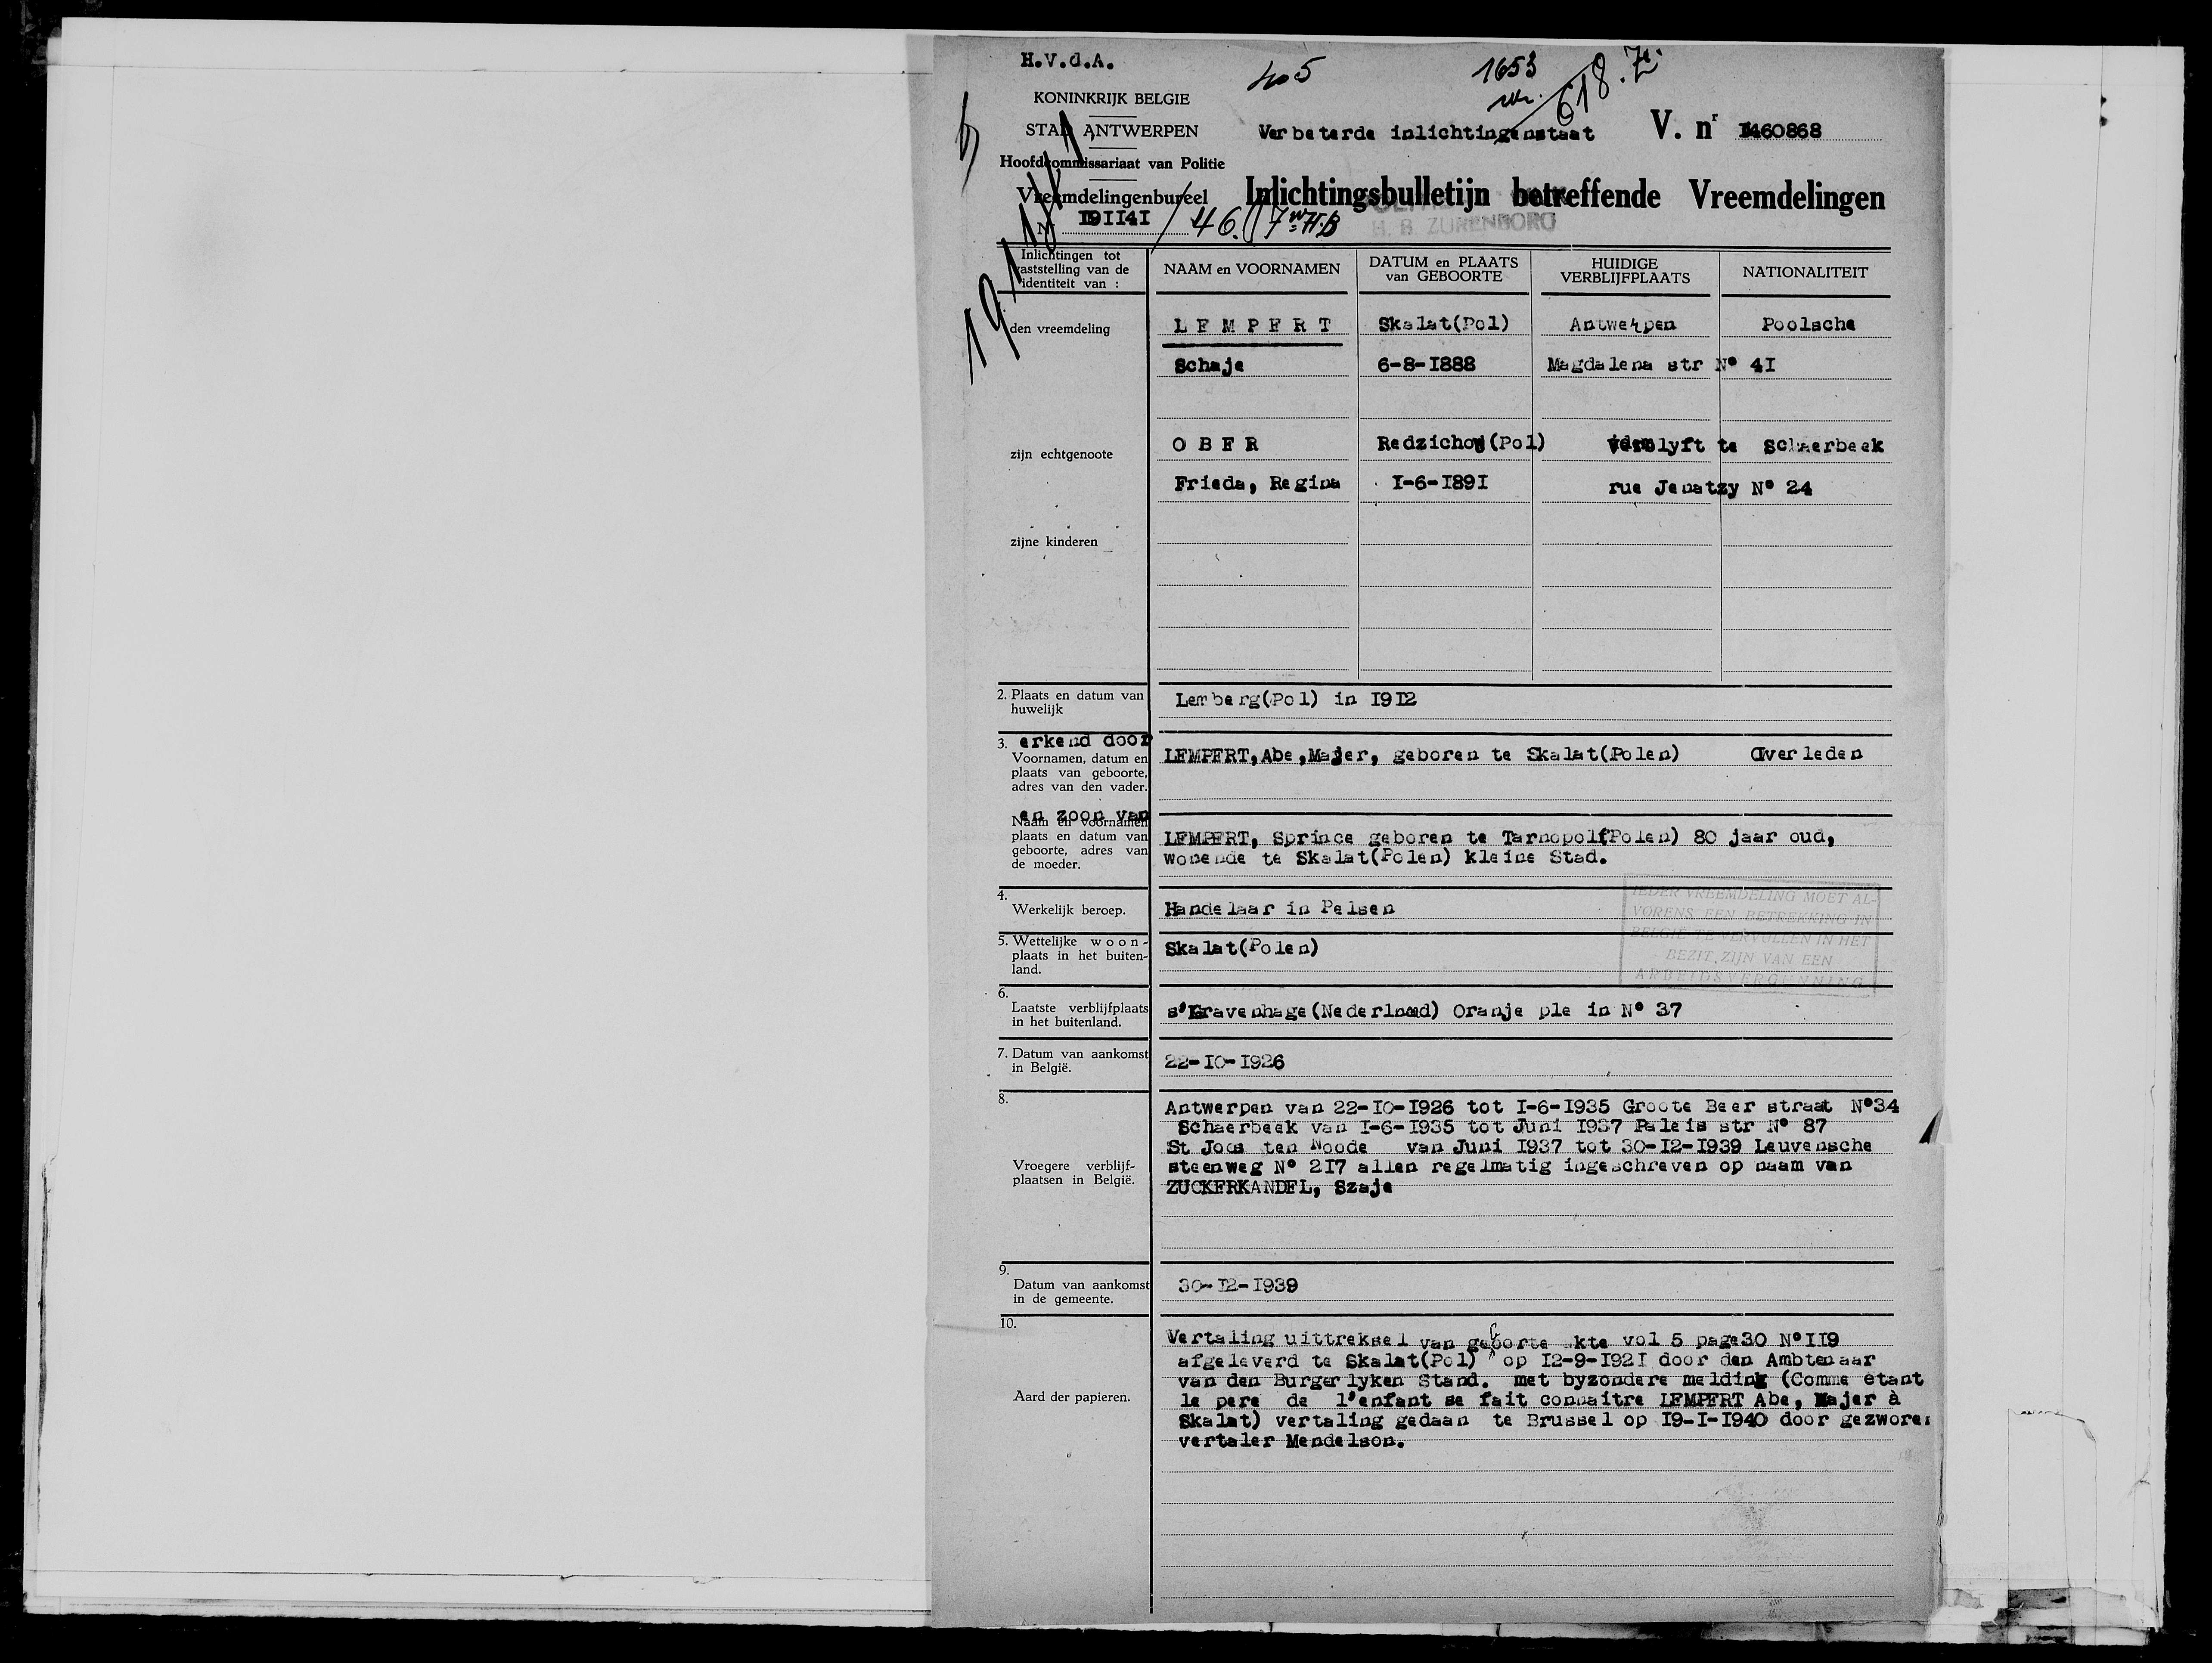 H.V.d.A.
1653
618.
KONINKRIJK BELGIE
STAD ANTWERPEN
Verbeterde inlichtingenstaat V. nr 1460868
Hoofdcommissariaat van Politie
Vreemdelingenbureel
Inlichtingsbulletijn betreffende Vreemdelingen
Nr I9II4I /46. 7e W.H.B
H. B. ZURENBORG
Inlichtingen tot vaststelling van de identiteit van :
NAAM en VOORNAMEN
DATUM en PLAATS van GEBOORTE
HUIDIGE VERBLIJFPLAATS
NATIONALITEIT
den vreemdeling
L E M P E R T Skalat(Pol) Antwerpen Poolsche
Schaje 6-8-I888 Magdalena str Nº 4I
zijn echtgenoote
O B E R Redzichow(Pol) verblyft te Schaerbeek
Frieda, Regina I-6-I89I rue Jenatzy Nº 24
zijne kinderen
2. Plaats en datum van
huwelijk
Lemberg(Pol) in I9I2
3. erkend door
Voornamen, datum en
plaats van geboorte,
adres van den vader.
LEMPERT,Abe,Majer, geboren te Skalat(Polen) Overleden
en zoon van
Naam en voornamen
plaats en datum van
geboorte, adres van
de moeder.
LEMPERT, Sprince geboren te Tarnopol(Polen) 80 jaar oud,
wonende te Skalat(Polen) kleine Stad.
IEDER VREEMDELING MOET AL-
VORENS EEN BETREKKING IN
BELGIE TE VERVULLEN IN HET
BEZIT ZIJN VAN EEN
ARBEIDSVERGUNNING
4.
Werkelijk beroep.
Handelaar in Pelsen
5. Wettelijke woon-
plaats in het buiten-
land.
Skalat(Polen)
6.
Laatste verblijfplaats
in het buitenland.
s'Gravenhage(Nederland) Oranje plein Nº 37
7. Datum van aankomst
in België.
22-I0-I926
8.
Vroegere verblijf-
plaatsen in België.
Antwerpen van 22-I0-I926 tot I-6-I935 Groote Beer straat Nº34
Schaerbeek van I-6-I935 tot Juni I937 Paleis str Nº 87
St Joos ten Noode van Juni I937 tot 30-I2-I939 Leuvensche
steenweg Nº 2I7 allen regelmatig ingeschreven op naam van
ZUCKERKANDEL, Szaje
9.
Datum van aankomst
in de gemeente.
30-I2-I939
10.
Aard der papieren.
Vertaling uittreksel van geboorte akte vol 5 page30 NºII9
afgeleverd te Skalat(Pol) op I2-9-I92I door den Ambtenaar
van den Burgerlyken Stand. met byzondere melding (Comme étant
le pere de l'enfant se fait connaitre LEMPERT Abe, Majer à
Skalat) vertaling gedaan te Brussel op I9-I-I940 door gezworen
vertaler Mendelson.